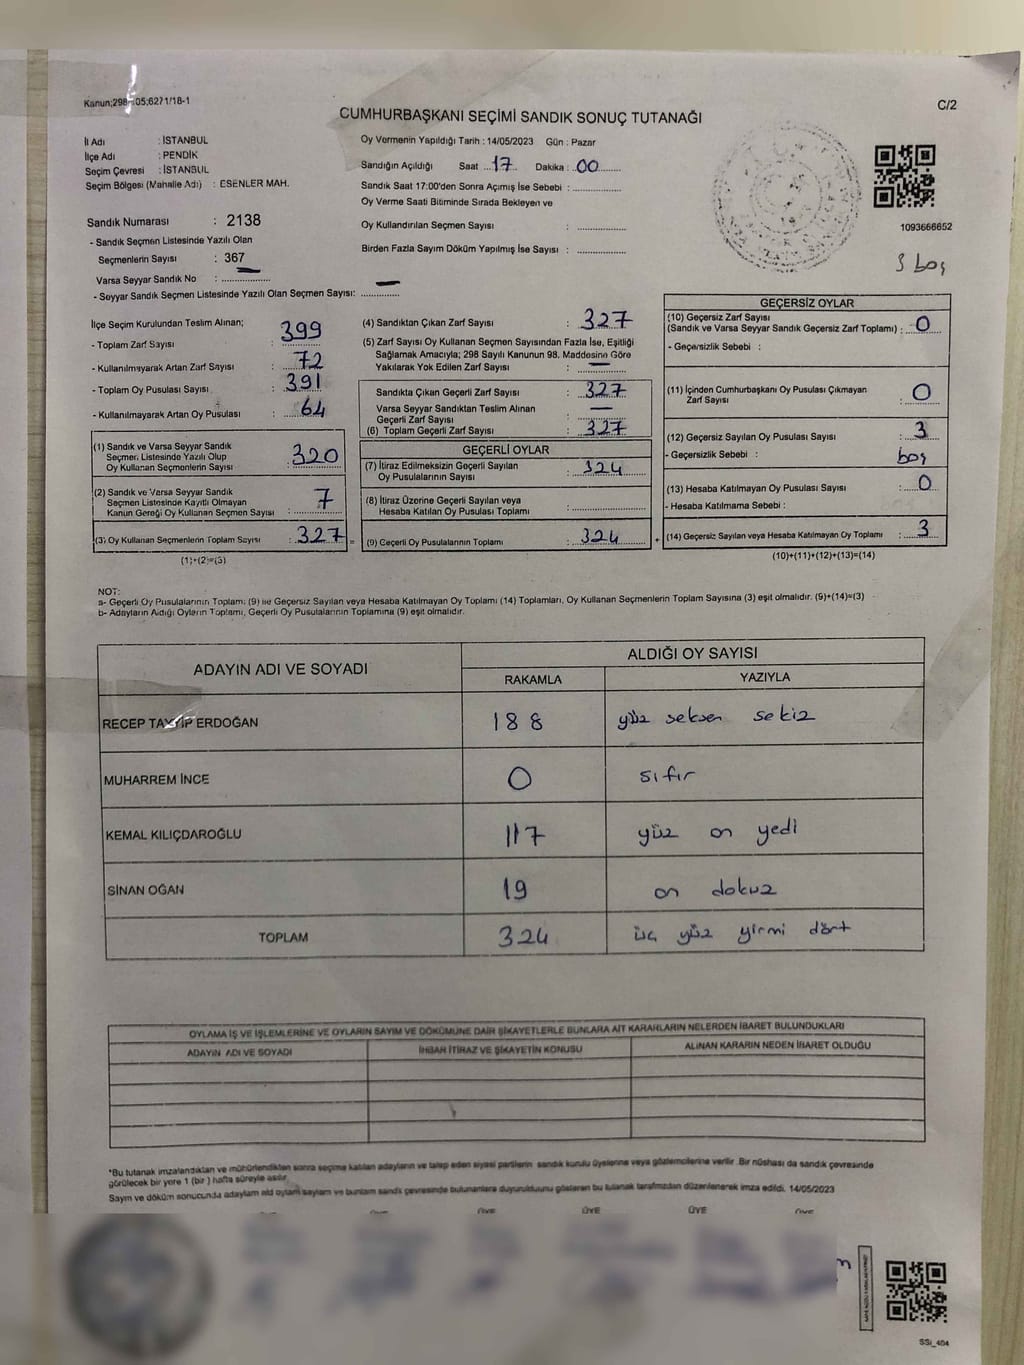 Kanun;298-05;6271/18-1
C/2
CUMHURBAŞKANI SEÇİMİ SANDIK SONUÇ TUTANAĞI
İl Adı : İSTANBUL
İlçe Adı : PENDİK
Seçim Çevresi : İSTANBUL
Seçim Bölgesi (Mahalle Adı) : ESENLER MAH.
Oy Vermenin Yapıldığı Tarih : 14/05/2023 Gün : Pazar
Sandığın Açıldığı Saat ...17... Dakika : .00......
Sandık Saat 17:00'den Sonra Açımış İse Sebebi : ..............
Oy Verme Saati Bitiminde Sırada Bekleyen ve
Oy Kullandırılan Seçmen Sayısı : ..............
Birden Fazla Sayım Döküm Yapılmış İse Sayısı : ..............
1093666652
3 boş
Sandık Numarası : 2138
- Sandık Seçmen Listesinde Yazılı Olan
Seçmenlerin Sayısı : 367
Varsa Seyyar Sandık No : ..............
- Seyyar Sandık Seçmen Listesinde Yazılı Olan Seçmen Sayısı: ..............
İlçe Seçim Kurulundan Teslim Alınan;
- Toplam Zarf Sayısı : 399
- Kullanılmayarak Artan Zarf Sayısı : 72
- Toplam Oy Pusulası Sayısı : 391
- Kullanılmayarak Artan Oy Pusulası : 64
(1) Sandık ve Varsa Seyyar Sandık
Seçmen Listesinde Yazılı Olup
Oy Kullanan Seçmenlerin Sayısı : 320
(2) Sandık ve Varsa Seyyar Sandık
Seçmen Listesinde Kayıtlı Olmayan
Kanun Gereği Oy Kullanan Seçmen Sayısı : 7
(3) Oy Kullanan Seçmenlerin Toplam Sayısı : 327 =
(1)+(2)=(3)
(4) Sandıktan Çıkan Zarf Sayısı : 327
(5) Zarf Sayısı Oy Kullanan Seçmen Sayısından Fazla İse, Eşitliği
Sağlamak Amacıyla; 298 Sayılı Kanunun 98. Maddesine Göre
Yakılarak Yok Edilen Zarf Sayısı : —
Sandıkta Çıkan Geçerli Zarf Sayısı : 327
Varsa Seyyar Sandıktan Teslim Alınan
Geçerli Zarf Sayısı : —
(6) Toplam Geçerli Zarf Sayısı : 327
GEÇERLİ OYLAR
(7) İtiraz Edilmeksizin Geçerli Sayılan
Oy Pusulalarının Sayısı : 324
(8) İtiraz Üzerine Geçerli Sayılan veya
Hesaba Katılan Oy Pusulası Toplamı : ..............
(9) Geçerli Oy Pusulalarının Toplamı : 324 +
GEÇERSİZ OYLAR
(10) Geçersiz Zarf Sayısı
(Sandık ve Varsa Seyyar Sandık Geçersiz Zarf Toplamı) : 0
- Geçersizlik Sebebi :
(11) İçinden Cumhurbaşkanı Oy Pusulası Çıkmayan
Zarf Sayısı : 0
(12) Geçersiz Sayılan Oy Pusulası Sayısı : 3
- Geçersizlik Sebebi : boş
(13) Hesaba Katılmayan Oy Pusulası Sayısı : 0
- Hesaba Katılmama Sebebi :
(14) Geçersiz Sayılan veya Hesaba Katılmayan Oy Toplamı : 3
(10)+(11)+(12)+(13)=(14)
NOT:
a- Geçerli Oy Pusulalarının Toplamı (9) ile Geçersiz Sayılan veya Hesaba Katılmayan Oy Toplamı (14) Toplamları, Oy Kullanan Seçmenlerin Toplam Sayısına (3) eşit olmalıdır. (9)+(14)=(3)
b- Adayların Aldığı Oyların Toplamı, Geçerli Oy Pusulalarının Toplamına (9) eşit olmalıdır.
ADAYIN ADI VE SOYADI
ALDIĞI OY SAYISI
RAKAMLA YAZIYLA
RECEP TAYYİP ERDOĞAN 188 yüz seksen sekiz
MUHARREM İNCE 0 sıfır
KEMAL KILIÇDAROĞLU 117 yüz on yedi
SİNAN OĞAN 19 on dokuz
TOPLAM 324 üç yüz yirmi dört
OYLAMA İŞ VE İŞLEMLERİNE VE OYLARIN SAYIM VE DÖKÜMÜNE DAİR ŞİKAYETLERLE BUNLARA AİT KARARLARIN NELERDEN İBARET BULUNDUKLARI
ADAYIN ADI VE SOYADI İHBAR İTİRAZ VE ŞİKAYETİN KONUSU ALINAN KARARIN NEDEN İBARET OLDUĞU
*Bu tutanak imzalandıktan ve mühürlendikten sonra seçime katılan adayların ve talep eden siyasi partilerin sandık kurulu üyelerine veya gözlemcilerine verilir. Bir nüshası da sandık çevresinde
görülecek bir yere 1 (bir) hafta süreyle asılır.
Sayım ve döküm sonucunda adayların aldığı oyların sayısını ve bunların sandık çevresinde bulunanlara duyurulduğunu gösteren bu tutanak tarafımızdan düzenlenerek imza edildi. 14/05/2023
ÜYE ÜYE ÜYE ÜYE ÜYE ÜYE
SSi_404